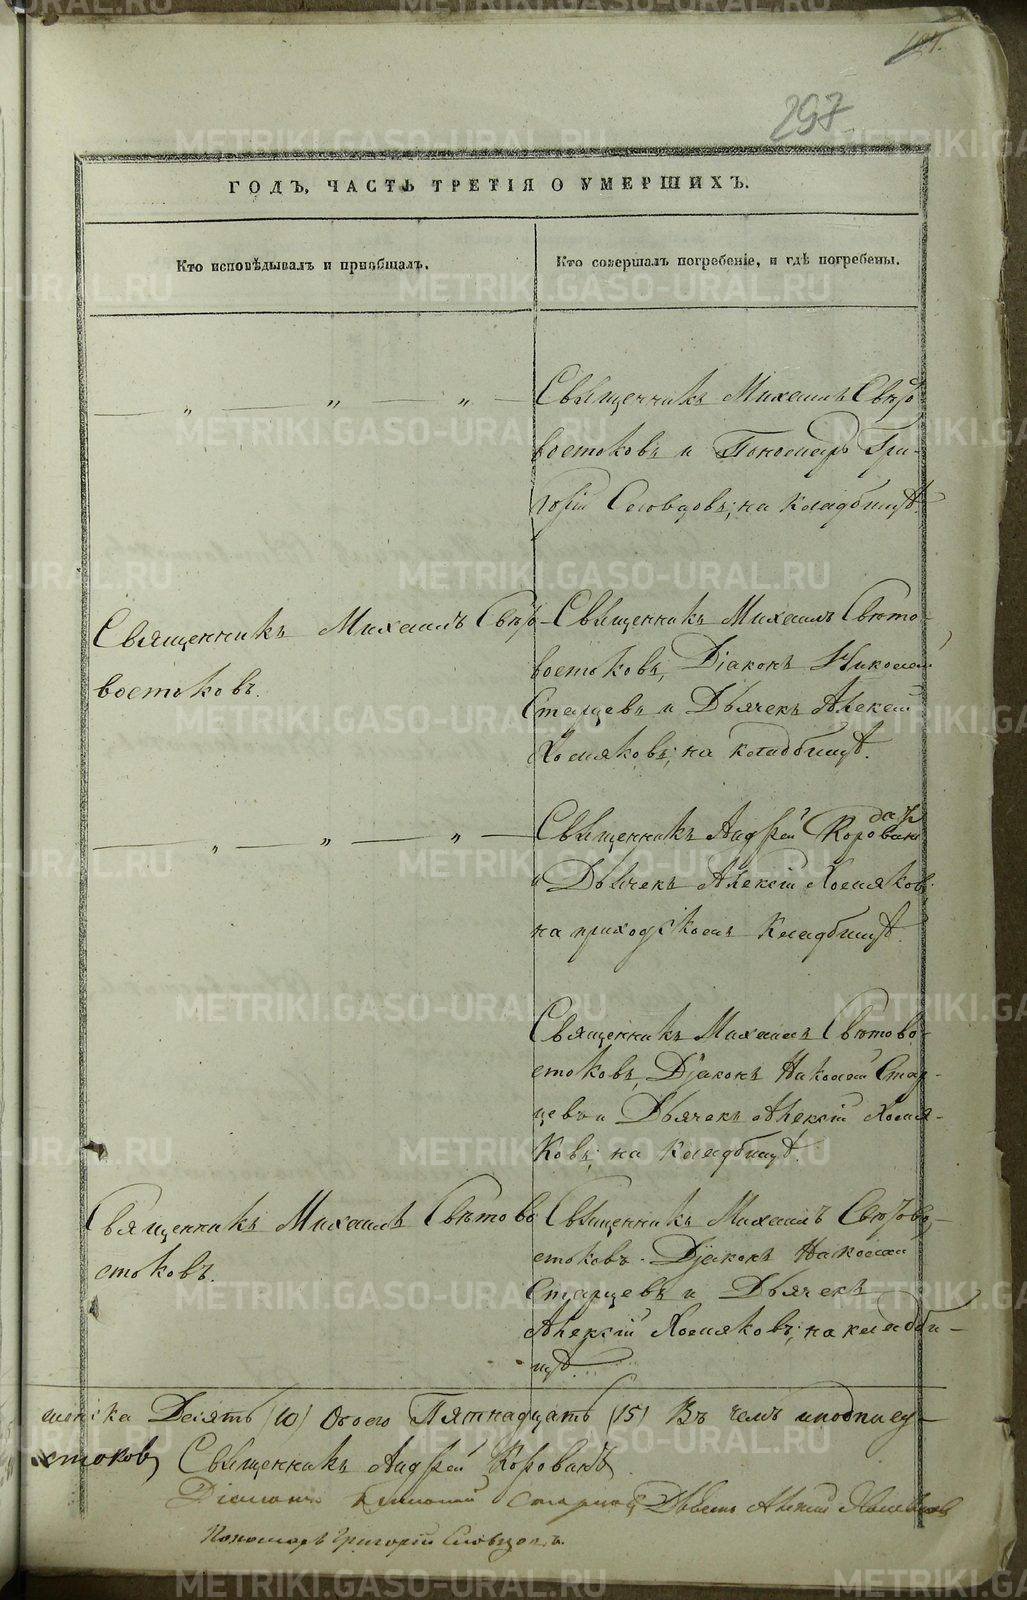 297
ГОДЪ, ЧАСТЬ ТРЕТІЯ О УМЕРШИХЪ.
Кто исповѣдывалъ и пріобщалъ.
Кто совершалъ погребеніе, и гдѣ погребены.
— „ — „ — „ —
Священникъ Михаилъ Свѣто-
востоковъ и Пономарь Гри-
горій Словцовъ; на кладбищѣ.
Священникъ Михаилъ Свѣто-
востоковъ.
Священникъ Михаилъ Свѣто-
востоковъ, Діаконъ Николай
Старцевъ и Дьячекъ Алексій
Хомяковъ; на кладбищѣ.
— „ — „ — „ —
Священникъ Андрей
и Дьячекъ Алексій Хомяковъ
на приходскомъ кладбищѣ.
Священникъ Михаилъ Свѣтово-
стоковъ, Діаконъ Николай Стар-
цевъ и Дьячекъ Алексій Хомя-
ковъ; на кладбищѣ.
Священникъ Михаилъ Свѣтово
стоковъ.
Священникъ Михаилъ Свѣтово-
стоковъ. Діаконъ Николай
Старцевъ и Дьячекъ
Алексій Хомяковъ; на кладби-
щѣ.
женска Десять (10) Обоего Пятнадцать (15) Въ чемъ и подпису-
стоковъ Священникъ Андрей
Діаконъ Николай Старцевъ Дьячекъ Алексій Хомяковъ
Пономарь Григорій Словцовъ.
METRIKI.GASO-URAL.RU